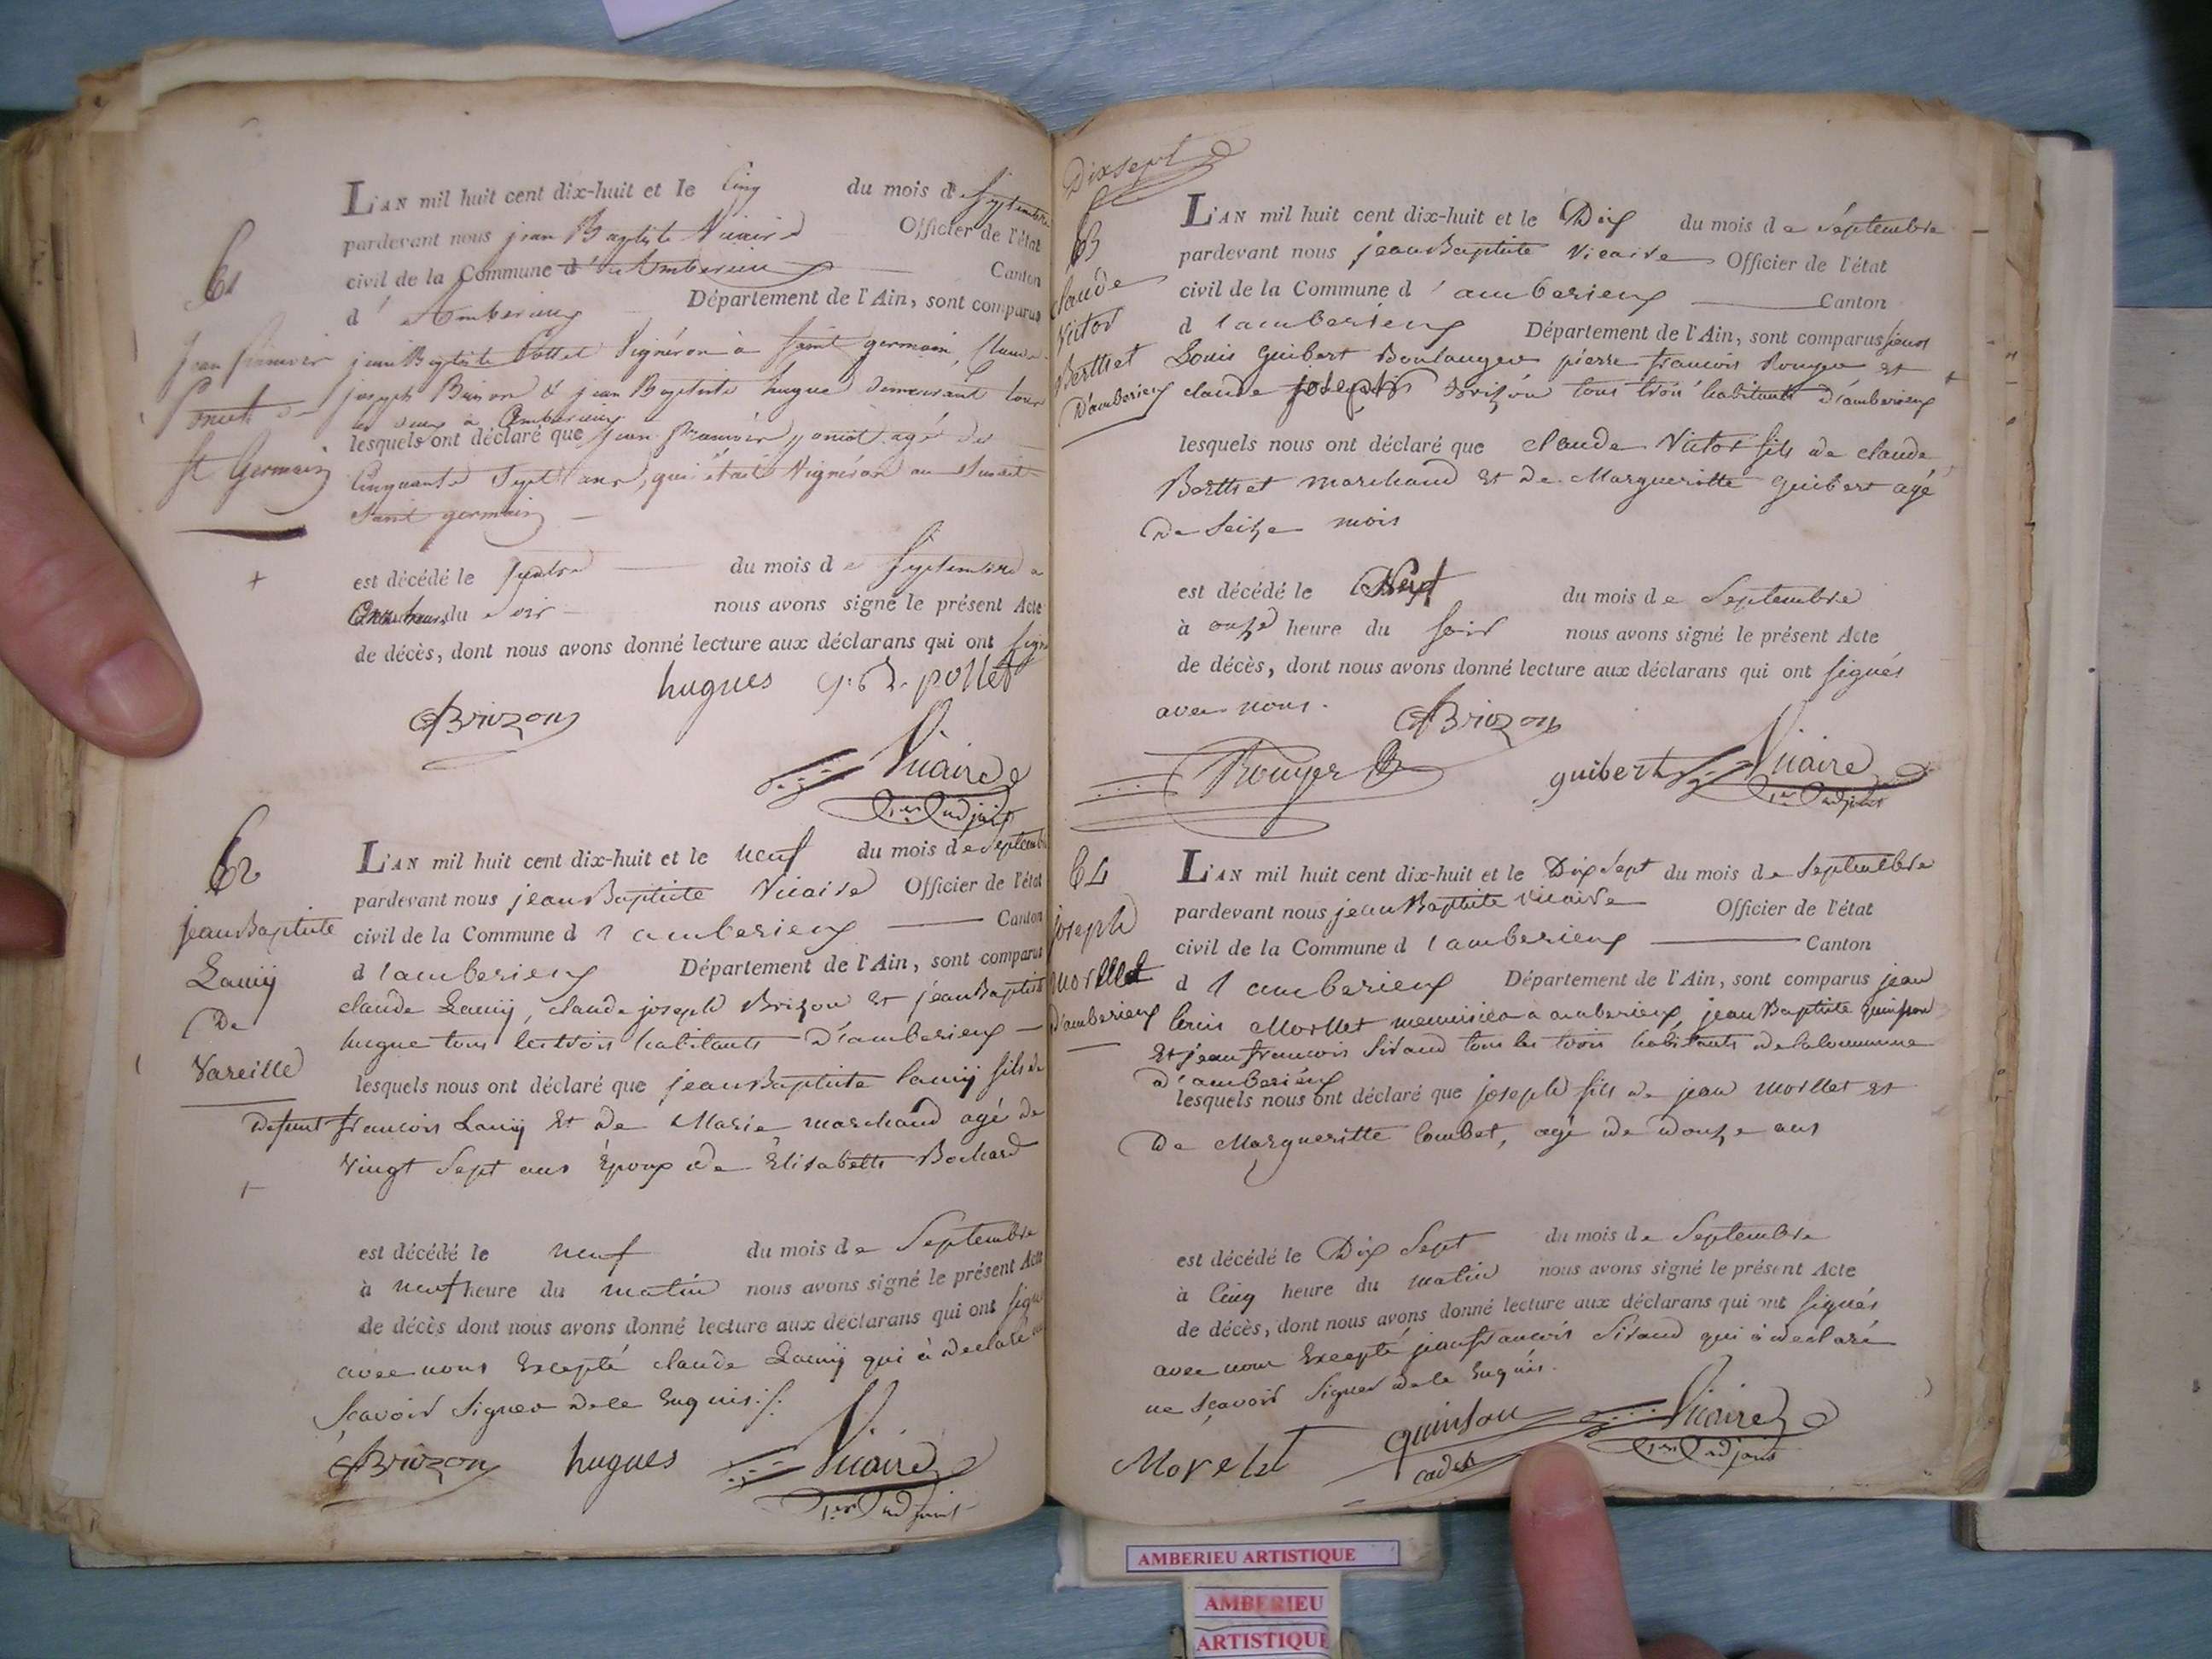 61
Jean François
St Germain
L'AN mil huit cent dix-huit et le Cinq du mois de Septembre
pardevant nous jean Baptiste Vicaire Officier de l'état
civil de la Commune d' Amberieux Canton
d' Amberieux Département de l'Ain, sont comparus
jean Baptiste Pollet Vignéron à Saint germain, Claude
joseph Brison & jean Baptiste hugue demeurant tous
les deux à Amberieux
lesquels ont déclaré que jean françois agé de
Cinquante Sept ans, qui était Vignéron au dit
Saint germain
est décédé le quatre du mois de Septembre a
heures du Soir nous avons signé le présent Acte
de décès, dont nous avons donné lecture aux déclarans qui ont signé
hugues j. b. pollet
Brizon
Vicaire
1er Adjoint
62
jean Baptiste
Lamy
De
Vareille
L'AN mil huit cent dix-huit et le neuf du mois de Septembre
pardevant nous jean Baptiste Vicaire Officier de l'état
civil de la Commune d'amberieux Canton
d'amberieux Département de l'Ain, sont comparus
claude Lamy, claude joseph Brizon Et jean Baptiste
hugue tous les trois habitants D'amberieux
lesquels nous ont déclaré que jean Baptiste lamy fils de
Defunt francois Lamy Et de Marie marchand agé de
vingt Sept ans Époux de Élisabeth Bochard
est décédé le neuf du mois de Septembre
à neuf heure du matin nous avons signé le présent Acte
de décès dont nous avons donné lecture aux déclarans qui ont signé
avec nous Excepté claude Lamy qui à declaré ne
Scavoir Signer de le Enquis
Brizon hugues Vicaire
1er Adjoint
Dixsept
63
Claude
Victor
Berthet
D'amberieux
L'AN mil huit cent dix-huit et le Dix du mois de Septembre
pardevant nous jean Baptiste Vicaire Officier de l'état
civil de la Commune d'amberieux Canton
d'amberieux Département de l'Ain, sont comparus sieurs
Louis Guibert Boulanger pierre francois Rouger et
claude joseph Brizon tous trois habitants d'amberieux
lesquels nous ont déclaré que claude Victor fils de claude
Berthet marchand Et de Margueritte guibert agé
de Seize mois
est décédé le Neuf du mois de Septembre
à onze heure du soir nous avons signé le présent Acte
de décès, dont nous avons donné lecture aux déclarans qui ont signés
avec nous.
Brizon
Rouger guibert Vicaire
1er Adjoint
64
joseph
morllet
D'amberieux
L'AN mil huit cent dix-huit et le Dix Sept du mois de Septembre
pardevant nous jean Baptiste Vicaire Officier de l'état
civil de la Commune d'amberieux Canton
d'amberieux Département de l'Ain, sont comparus jean
louis Morllet menuisier a amberieux, jean Baptiste Quinson
Et jean francois Siraud tous les trois habitants de la commune
d'amberieux
lesquels nous ont déclaré que joseph fils de jean morllet Et
De Margueritte Combet, agé de Douze ans
est décédé le Dix Sept du mois de Septembre
à Cinq heure du matin nous avons signé le présent Acte
de décès, dont nous avons donné lecture aux déclarans qui ont signés
avec nous Excepté jean francois Siraud qui à declaré
ne Sçavoir Signer de le Enquis.
Morelet quinson Vicaire
cadet 1er Adjoint
AMBERIEU ARTISTIQUE
AMBERIEU
ARTISTIQUE